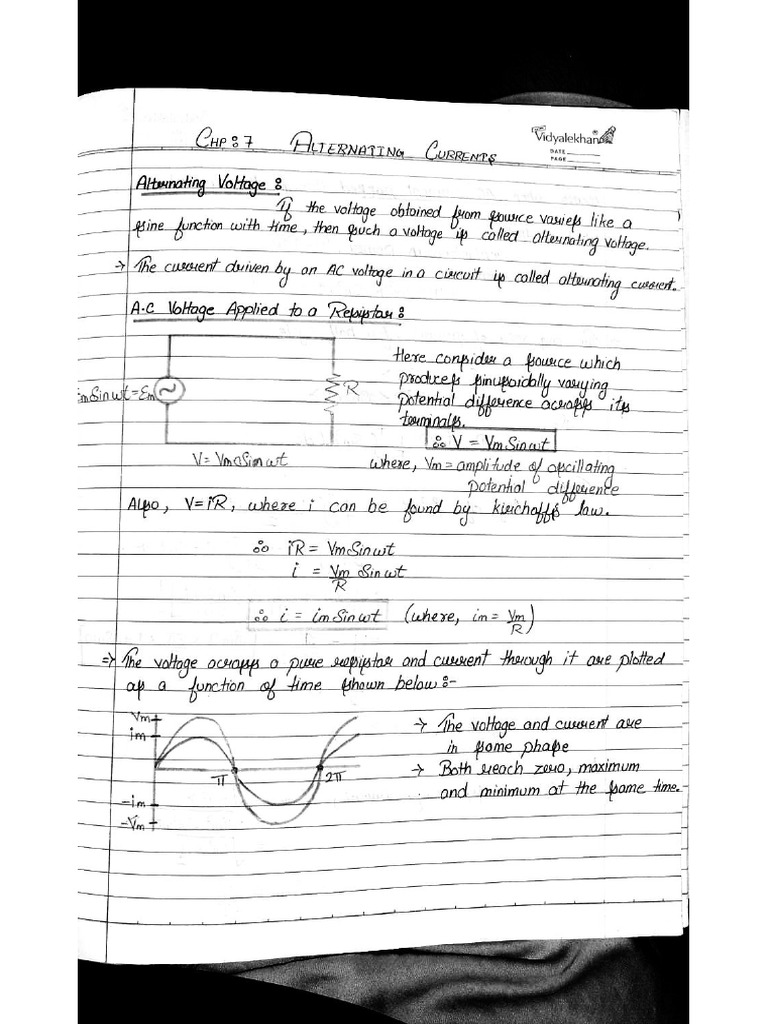 CHP:7 ALTERNATING CURRENTS
Vidyalekhan
DATE
PAGE
Alternating Voltage:
If the voltage obtained from source varies like a
sine function with time, then such a voltage is called alternating voltage.
→ The current driven by an AC voltage in a circuit is called alternating current.
A.C Voltage Applied to a Resistar:
Here consider a source which
produces sinusoidally varying
potential difference across its
terminals.
∴ V = VmSinwt
ImSinwt = Em
~
R
V = VmSinwt
where, Vm = amplitude of oscillating
potential difference
Also, V=iR, where i can be found by kirichoff's law.
∴ iR = VmSinwt
i = Vm/R Sinwt
∴ i = imSinwt (where, im = Vm/R)
⇒ The voltage across a pure resistar and current through it are plotted
as a function of time shown below:-
Vm
im
π
2π
-im
-Vm
→ The voltage and current are
in same phase
→ Both reach zero, maximum
and minimum at the same time.